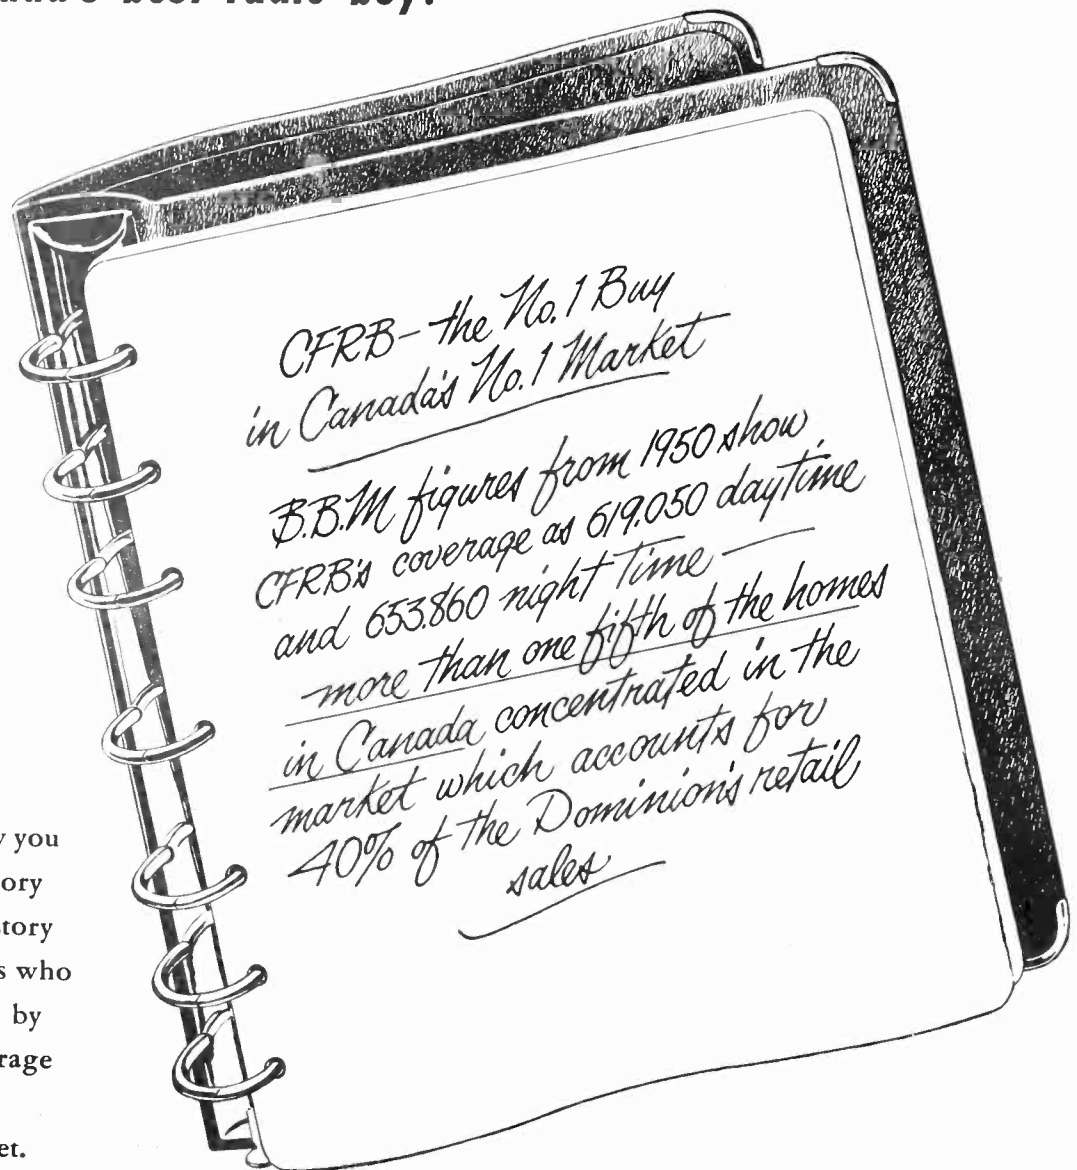 best radio buy!
CFRB – the No. 1 Buy
in Canada's No. 1 Market
B.B.M figures from 1950 show
CFRB's coverage as 619,050 daytime
and 653,860 night time —
— more than one fifth of the homes
in Canada concentrated in the
market which accounts for
40% of the Dominion's retail
sales
you
who
by
et.